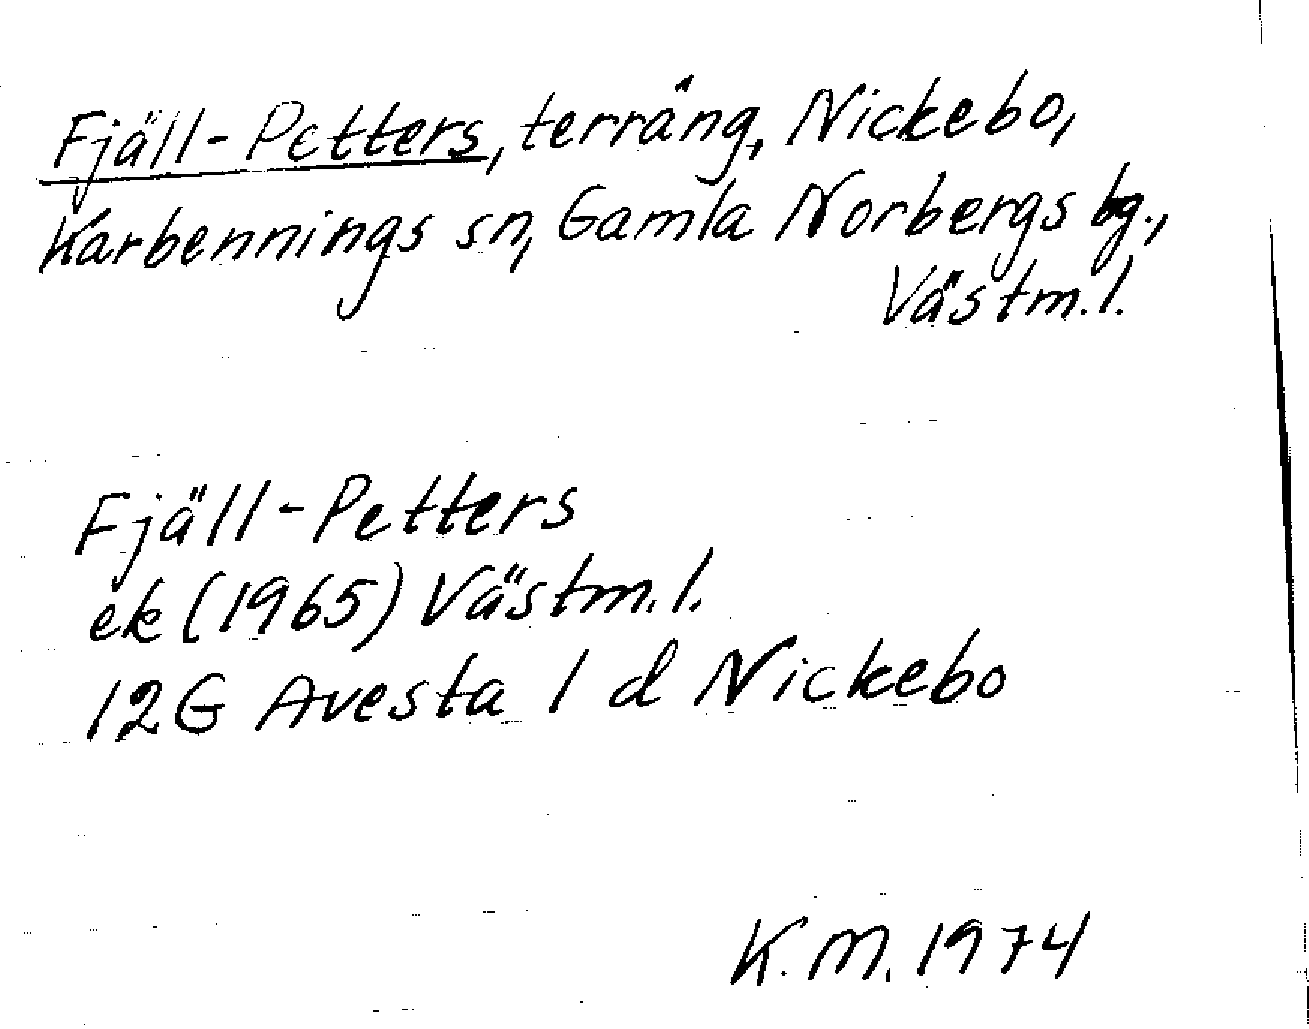 Fjäll-Petters, terräng, Nickebo,
Karbennings sn, Gamla Norbergs bg.,
Västm.l.
Fjäll-Petters
ek (1965) Västm.l.
12G Avesta 1 d Nickebo
K.M. 1974